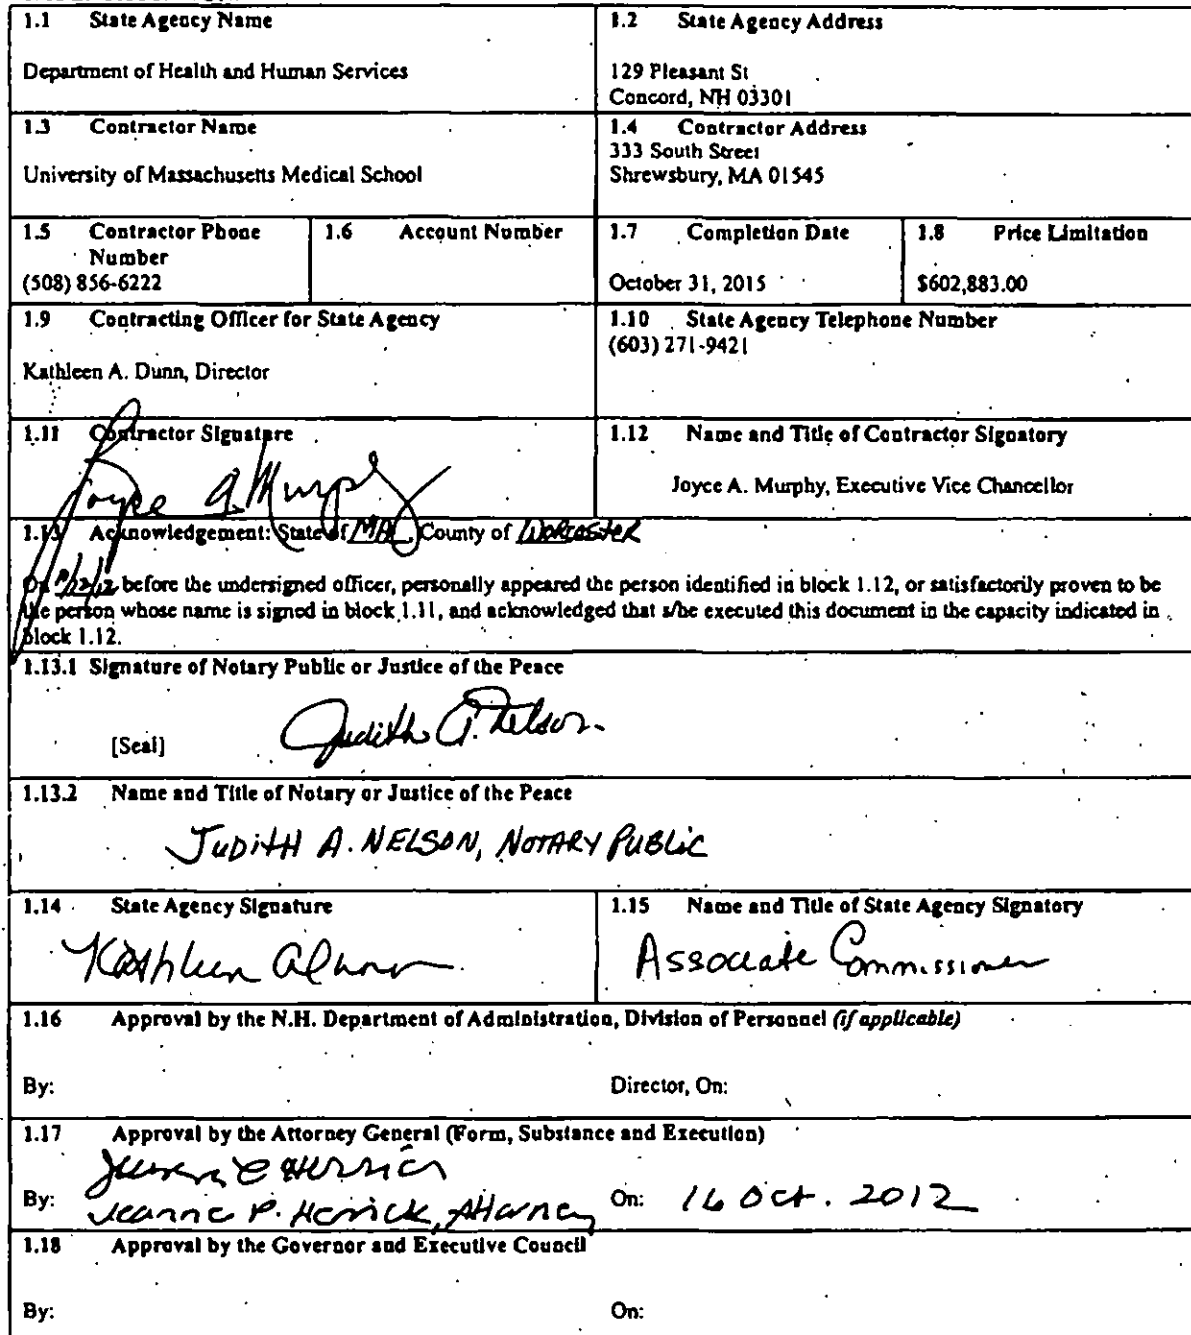 1.1 State Agency Name
Department of Health and Human Services
1.2 State Agency Address
129 Pleasant St
Concord, NH 03301
1.3 Contractor Name
University of Massachusetts Medical School
1.4 Contractor Address
333 South Street
Shrewsbury, MA 01545
1.5 Contractor Phone
Number
(508) 856-6222
1.6 Account Number
1.7 Completion Date
October 31, 2015
1.8 Price Limitation
$602,883.00
1.9 Contracting Officer for State Agency
Kathleen A. Dunn, Director
1.10 State Agency Telephone Number
(603) 271-9421
1.11 Contractor Signature
Joyce A. Murphy
1.12 Name and Title of Contractor Signatory
Joyce A. Murphy, Executive Vice Chancellor
1.13 Acknowledgement: State of MA, County of Worcester
On before the undersigned officer, personally appeared the person identified in block 1.12, or satisfactorily proven to be
the person whose name is signed in block 1.11, and acknowledged that s/he executed this document in the capacity indicated in
block 1.12.
1.13.1 Signature of Notary Public or Justice of the Peace
[Seal] Judith A. Nelson
1.13.2 Name and Title of Notary or Justice of the Peace
JUDITH A. NELSON, NOTARY PUBLIC
1.14 State Agency Signature
Kathleen A Dunn
1.15 Name and Title of State Agency Signatory
Associate Commissioner
1.16 Approval by the N.H. Department of Administration, Division of Personnel (if applicable)
By: Director, On:
1.17 Approval by the Attorney General (Form, Substance and Execution)
By: Jeanne P. Herrick, Attorney On: 16 Oct. 2012
1.18 Approval by the Governor and Executive Council
By: On: